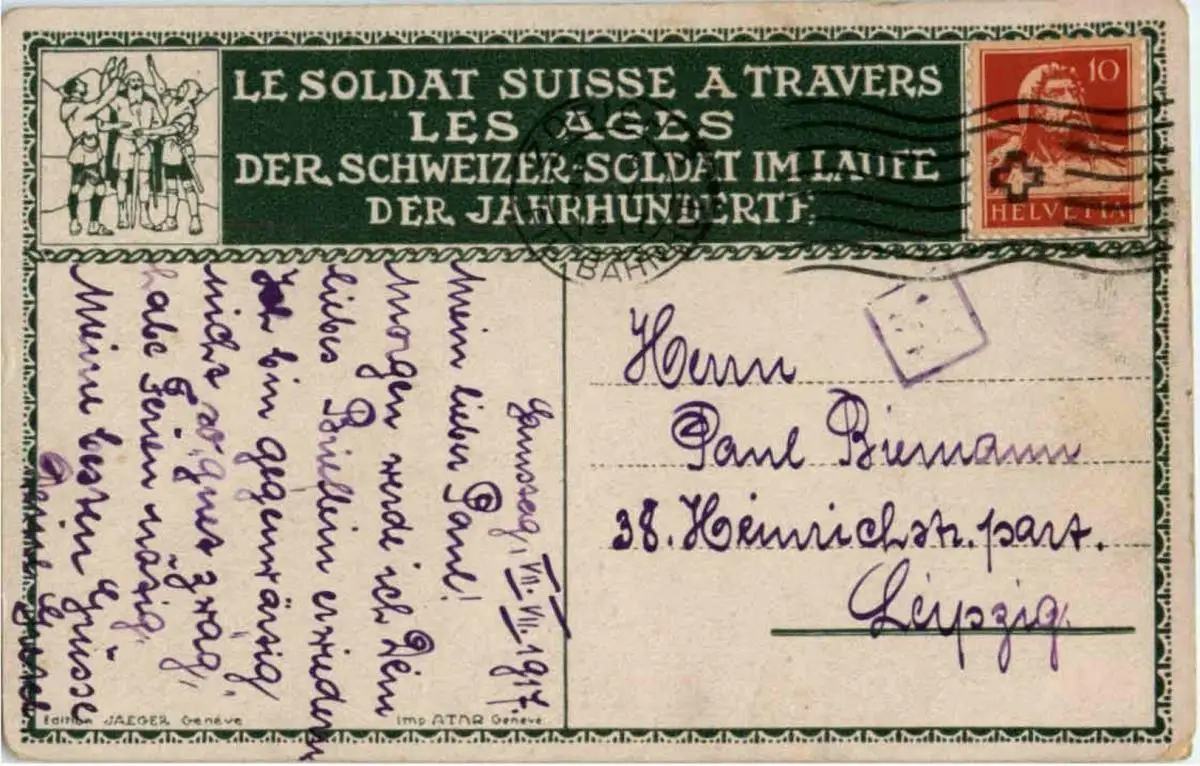 LE SOLDAT SUISSE A TRAVERS
LES AGES
DER SCHWEIZER-SOLDAT IM LAUFE
DER JAHRHUNDERTE
10
HELVETIA
BAHN
Samstag, VII. VII. 1917.
Mein lieber Paul!
Morgen werde ich Dein
liebes Brieflein erwiedern
Ich bin gegenwärtig
nicht zwäg,
habe Ferien nötig.
Meine besten Grüsse
Dein
Herrn
Paul Biemann
38. Heinrichstr. part.
Leipzig.
Edition JAEGER Genève
Imp ATAR Genève